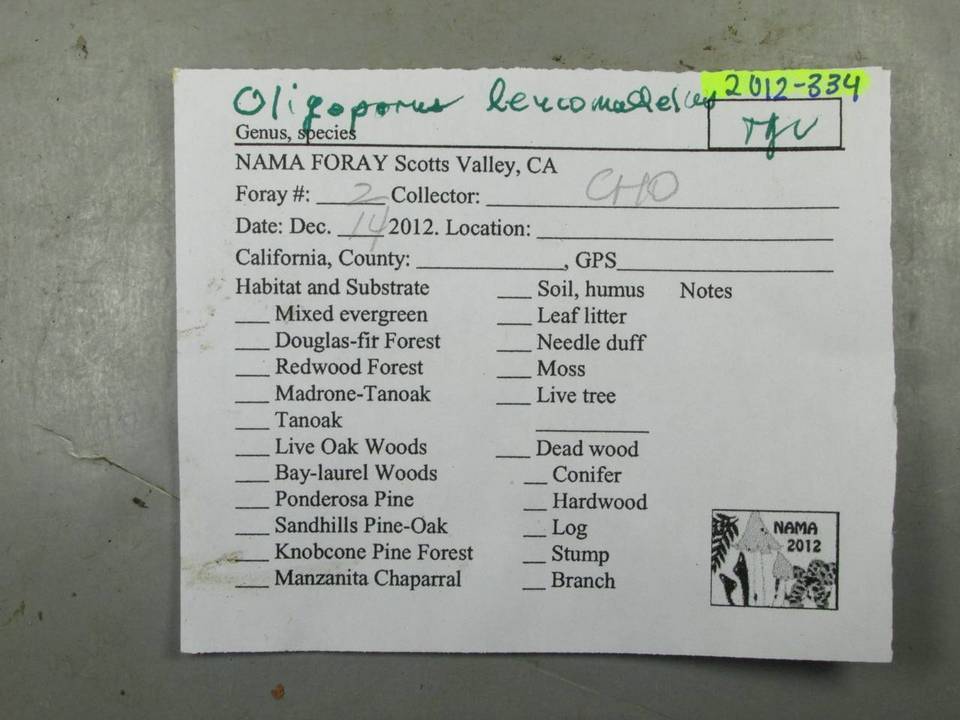 2012-334
Oligoporus leucomallellus
rgv
Genus, species
NAMA FORAY Scotts Valley, CA
Foray #: 2 Collector: CHO
Date: Dec. 14 2012. Location:
California, County: , GPS
Habitat and Substrate
Mixed evergreen
Douglas-fir Forest
Redwood Forest
Madrone-Tanoak
Tanoak
Live Oak Woods
Bay-laurel Woods
Ponderosa Pine
Sandhills Pine-Oak
Knobcone Pine Forest
Manzanita Chaparral
Soil, humus
Leaf litter
Needle duff
Moss
Live tree
Dead wood
Conifer
Hardwood
Log
Stump
Branch
Notes
NAMA
2012